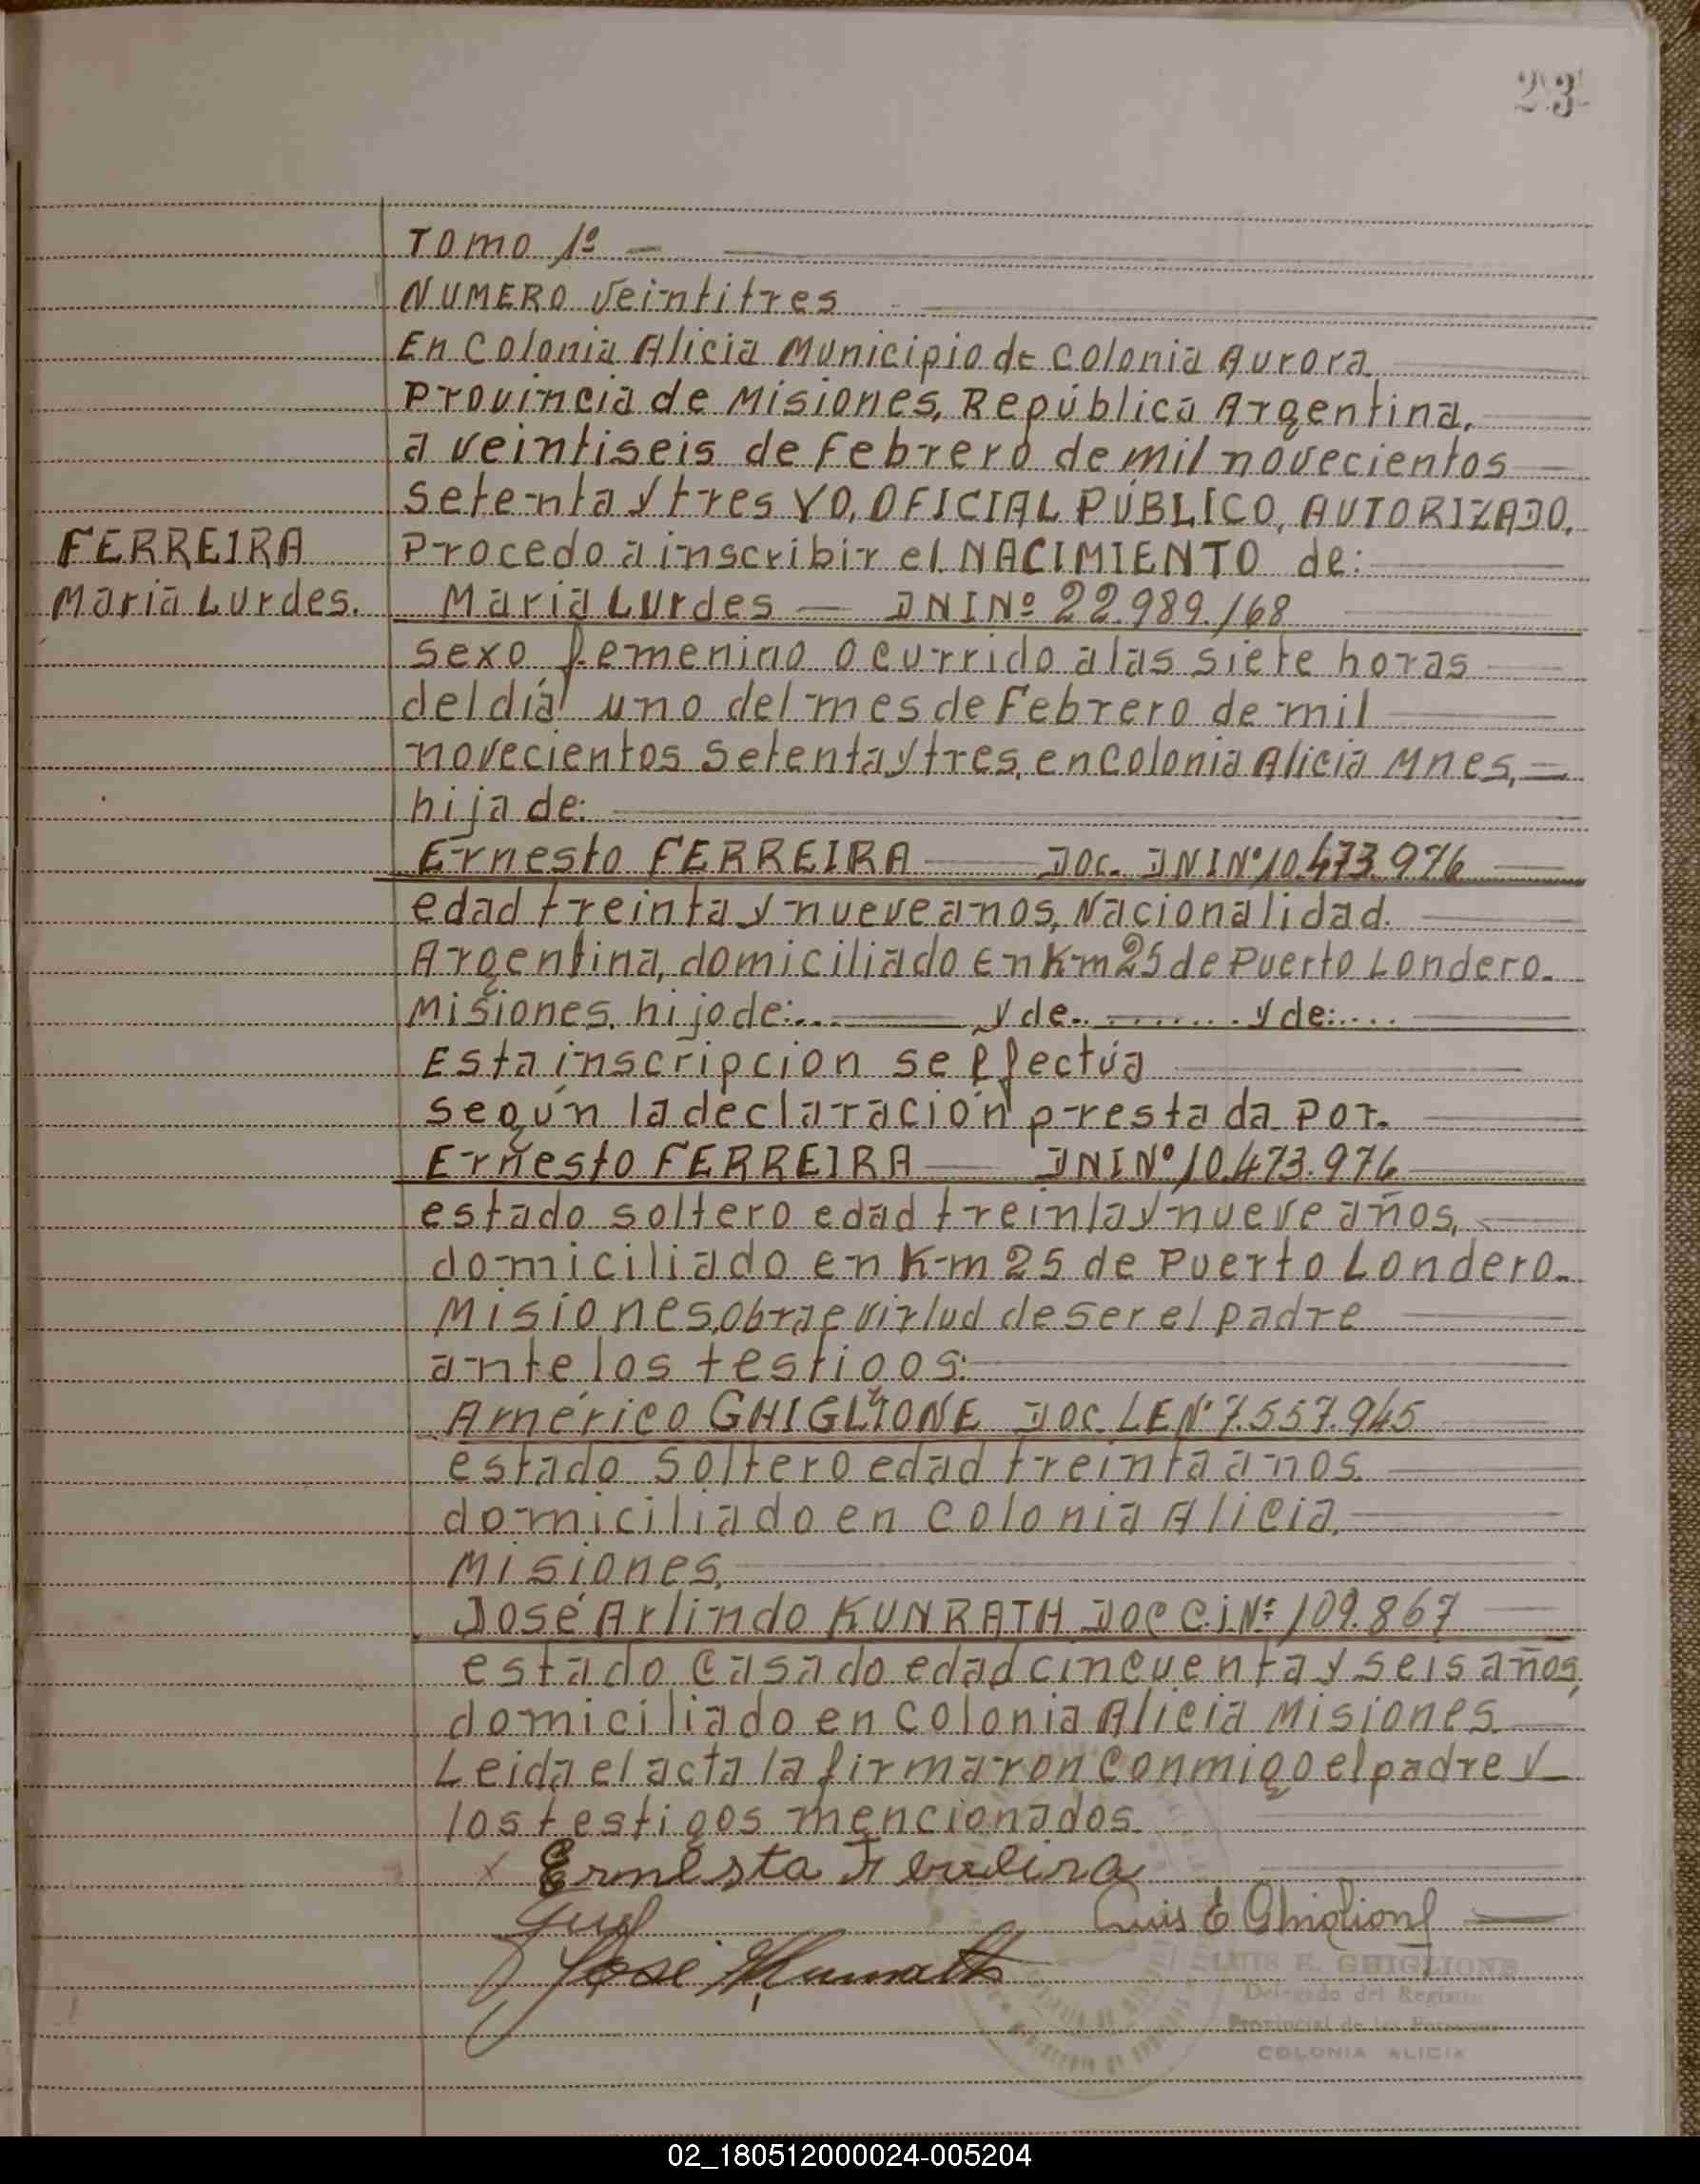 23
TOMO 1º
NUMERO veintitres
En Colonia Alicia Municipio de Colonia Aurora
Provincia de Misiones, República Argentina,
a veintiseis de Febrero de mil novecientos
setenta y tres YO, OFICIAL PÚBLICO, AUTORIZADO,
FERREIRA
Procedo a inscribir el NACIMIENTO de:
Maria Lurdes.
Maria Lurdes — DNI Nº 22.989.168
sexo femenino ocurrido a las siete horas
del día uno del mes de Febrero de mil
novecientos setenta y tres, en Colonia Alicia Mnes,
hija de:
Ernesto FERREIRA — DOC. DNI Nº 10.473.976
edad treinta y nueve anos, Nacionalidad.
Argentina, domiciliado En Km 25 de Puerto Londero.
Misiones, hijo de:... — y de......... y de:....
Esta inscripcion se efectúa
según la declaración prestada por.
Ernesto FERREIRA — DNI Nº 10.473.976
estado soltero edad treinta y nueve años,
domiciliado en Km 25 de Puerto Londero.
Misiones, obra e virtud de ser el padre
ante los testigos:
Américo GHIGLIONE DOC. LE Nº 7.557.945
estado soltero edad treinta anos
domiciliado en Colonia Alicia,
Misiones,
José Arlindo KUNRATH DOC C.I. Nº 109.867
estado casado edad cincuenta y seis años,
domiciliado en Colonia Alicia Misiones
Leida el acta la firmaron conmigo el padre y
los testigos mencionados.
Ernesta Ferreira
Luis E Ghiglione
José Kunrath
LUIS E. GHIGLIONE
Delegado del Registro
Provincial de las Personas
COLONIA ALICIA
02_180512000024-005204